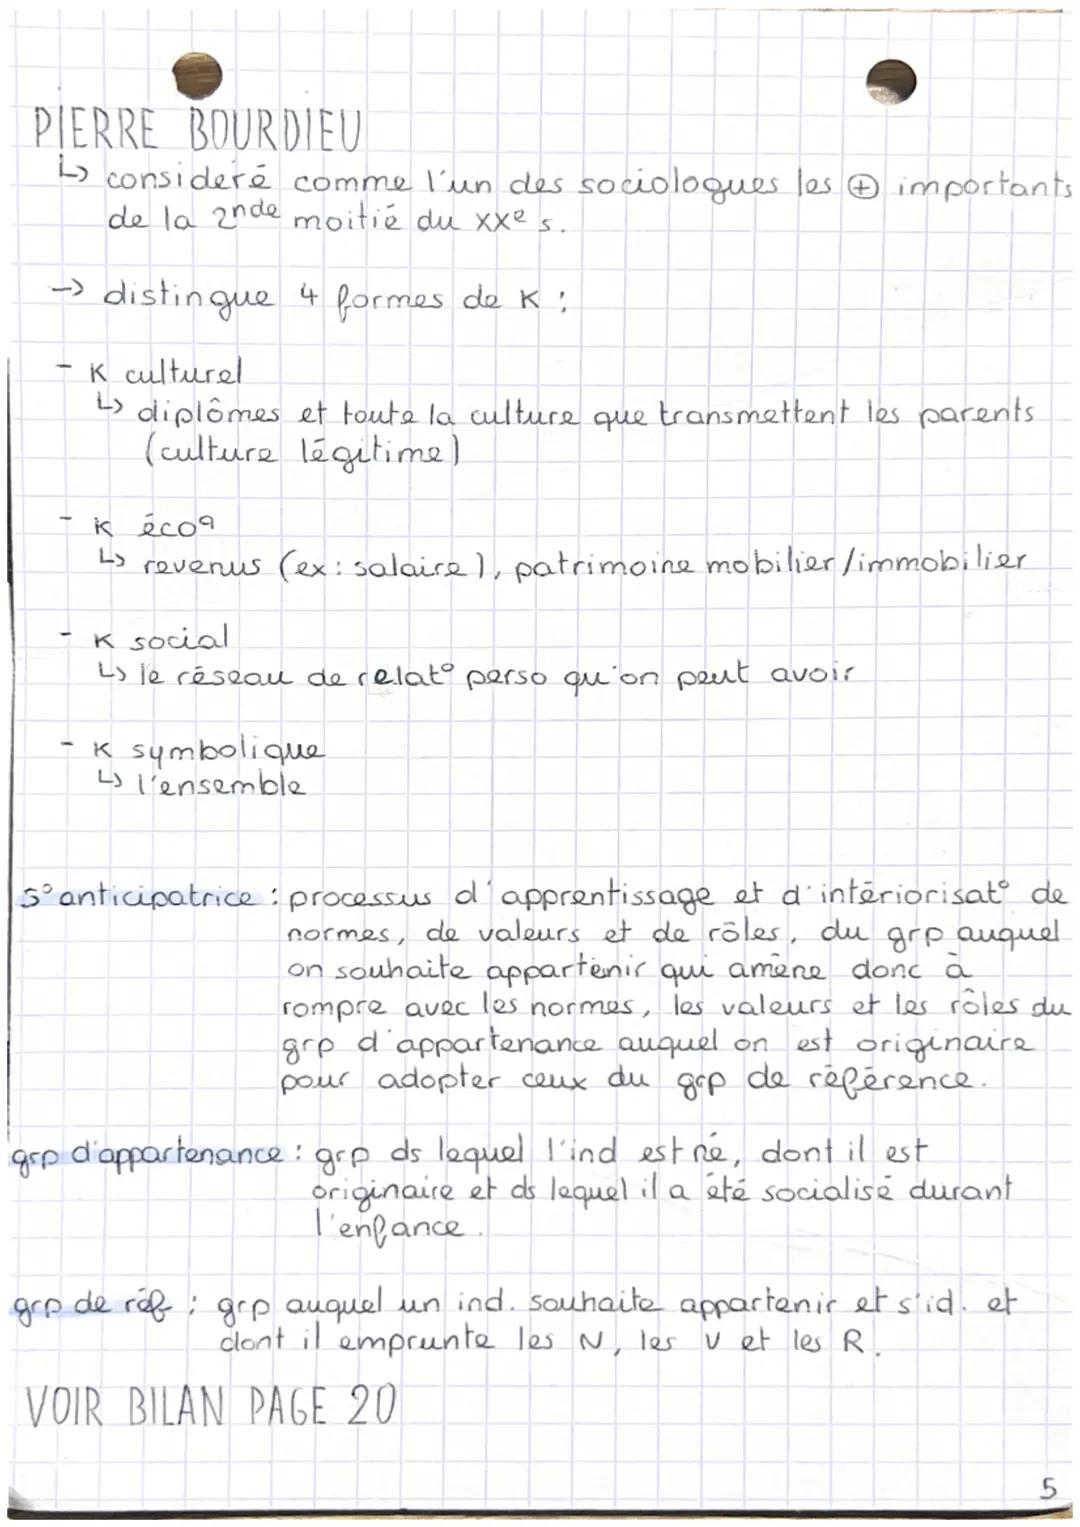 PIERRE BOURDIEU
↳ consideré comme l'un des sociologues les ⊕ importants
de la 2nde moitié du XXe s.
→ distingue 4 formes de K :
- K culturel
↳ diplômes et toute la culture que transmettent les parents
(culture légitime)
- K écoq
↳ revenus (ex : salaire), patrimoine mobilier/immobilier
- K social
↳ le réseau de relat° perso qu'on peut avoir
- K symbolique
↳ l'ensemble
S° anticipatrice : processus d'apprentissage et d'intériorisat° de
normes, de valeurs et de rôles, du grp auquel
on souhaite appartenir qui amène donc à
rompre avec les normes, les valeurs et les rôles du
grp d'appartenance auquel on est originaire
pour adopter ceux du grp de référence.
grp d'appartenance : grp ds lequel l'ind est né, dont il est
originaire et ds lequel il a été socialisé durant
l'enfance.
grp de réf : grp auquel un ind. souhaite appartenir et s'id. et
dont il emprunte les N, les V et les R.
VOIR BILAN PAGE 20
5